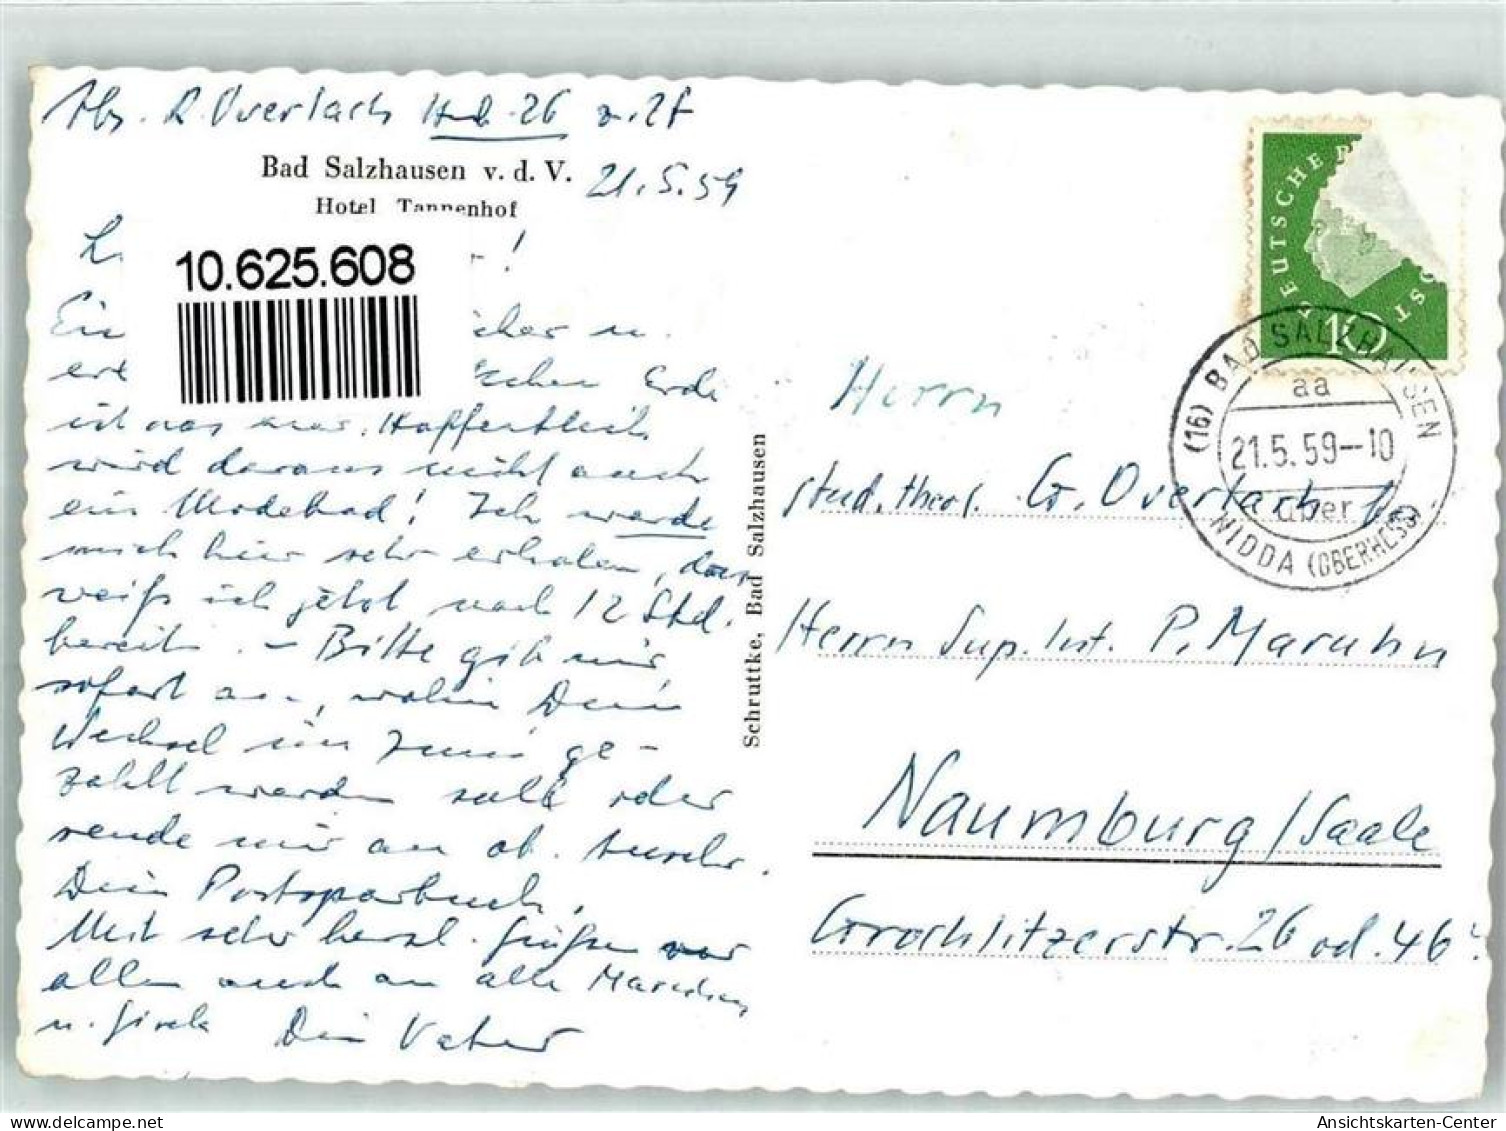 Abs. R. Overlach
Bad Salzhausen v. d. V. 21.5.59
Hotel Tannenhof
10.625.608
Erde
ist was . Hoffentlich
wird daraus nicht auch
ein Modebad! Ich werde
mich hier sehr erholen, das
weiß ich jetzt nach 12 Std.
bereits. – Bitte gib mir
sofort an, wohin Dein
Wechsel im Juni ge-
zahlt werden soll oder
sende mir an ob. Anschr.
Dein Postsparbuch.
Mit sehr herzl. Grüßen vor
allem auch an alle Maruhns
u. Gisela Dein Vater
Schruttke, Bad Salzhausen
DEUTSCHE
OST
10
(16) BAD SALZHAUSEN
aa
21.5.59–10
über
NIDDA (OBERHESS)
Herrn
stud. theol. G. Overlach
Herrn Sup. Int. P. Maruhn
Naumburg/Saale
Grochlitzerstr. 26 od. 46?
Ansichtskarten-Center